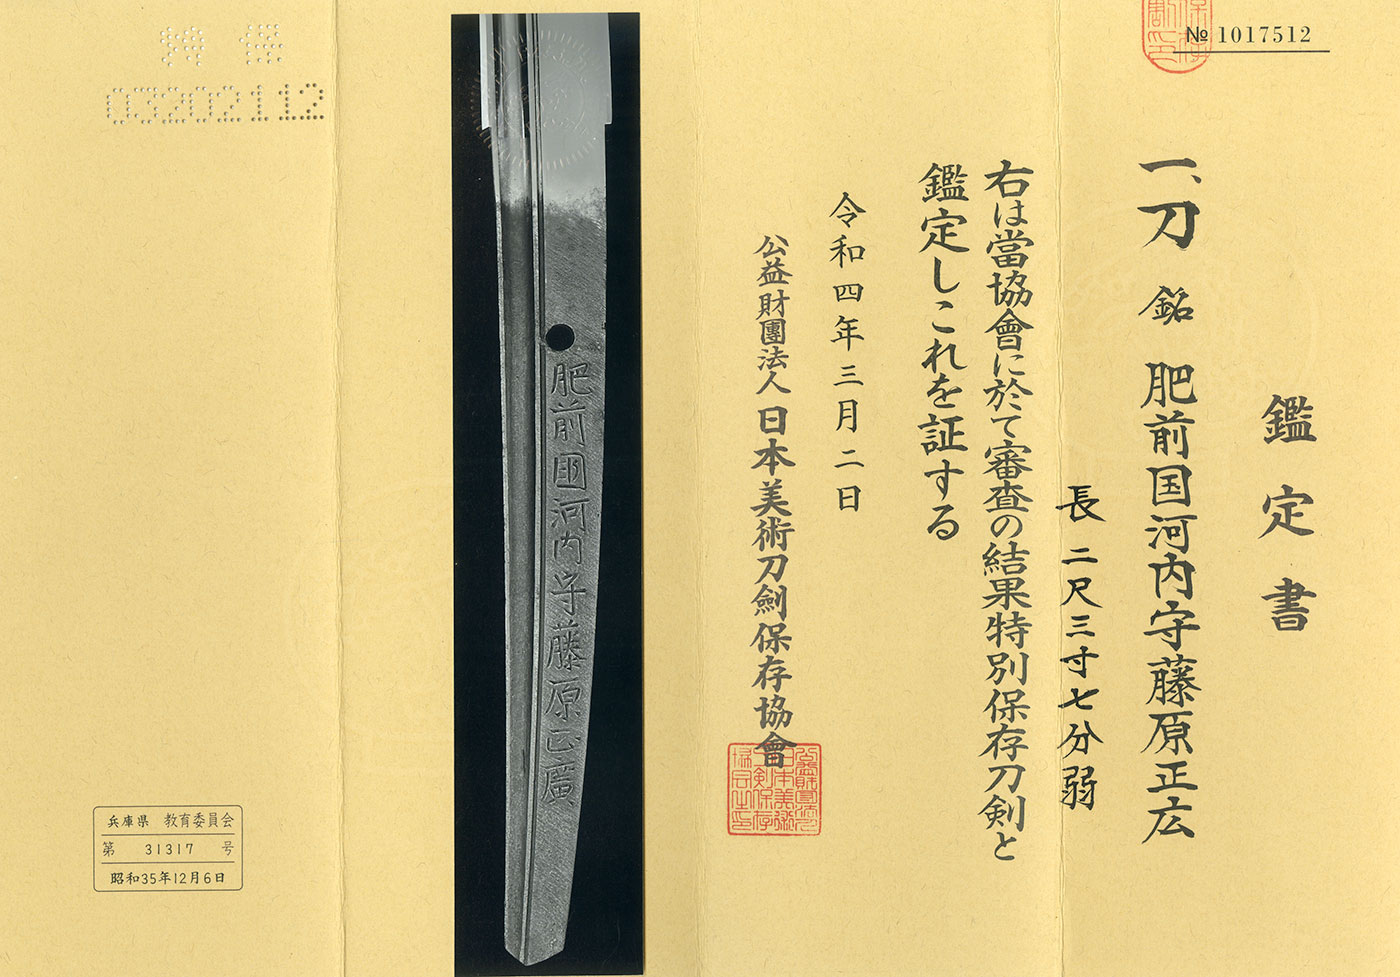 № 1017512
鑑定書
一、刀 銘 肥前国河内守藤原正広
長 二尺三寸七分弱
右は當協會に於て審査の結果特別保存刀剣と
鑑定しこれを証する
令和四年三月二日
公益財團法人 日本美術刀劍保存協會
肥前国河内守藤原正廣
特保
03202112
兵庫県 教育委員会
第 31317 号
昭和35年12月6日